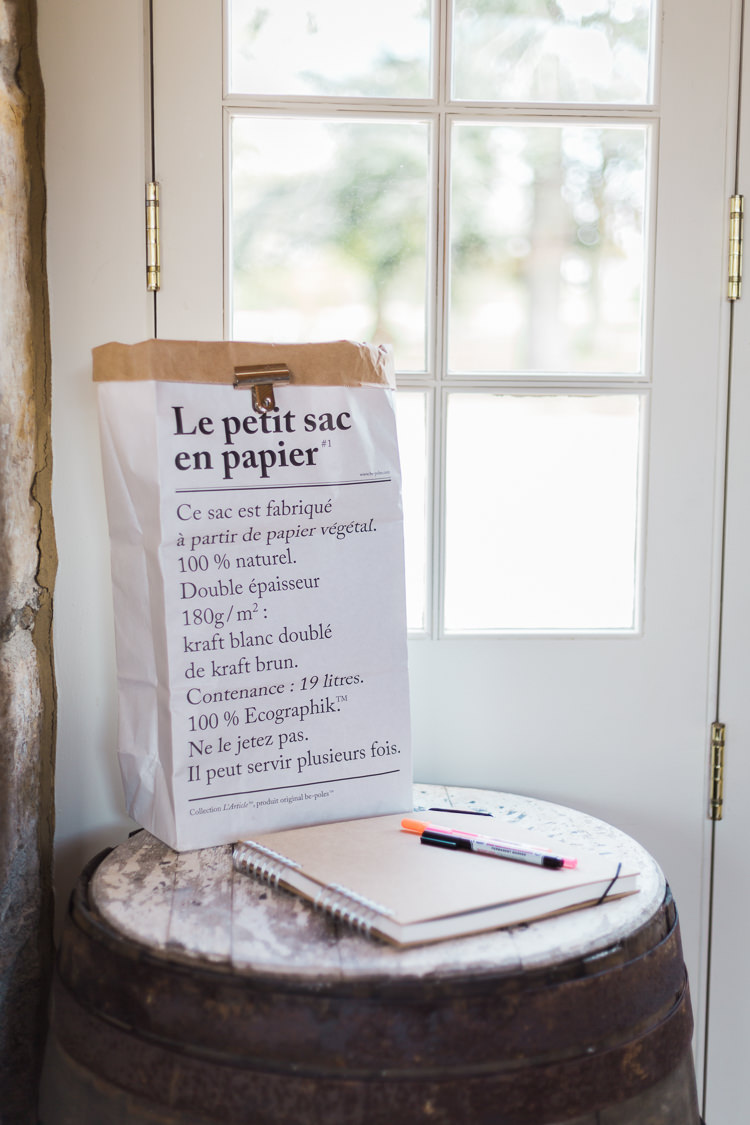 Le petit sac
en papier #1
www.be-poles.com
Ce sac est fabriqué
à partir de papier végétal.
100 % naturel.
Double épaisseur
180g/m² :
kraft blanc doublé
de kraft brun.
Contenance : 19 litres.
100 % Ecographik.™
Ne le jetez pas.
Il peut servir plusieurs fois.
Collection L'Article™, produit original be-poles™